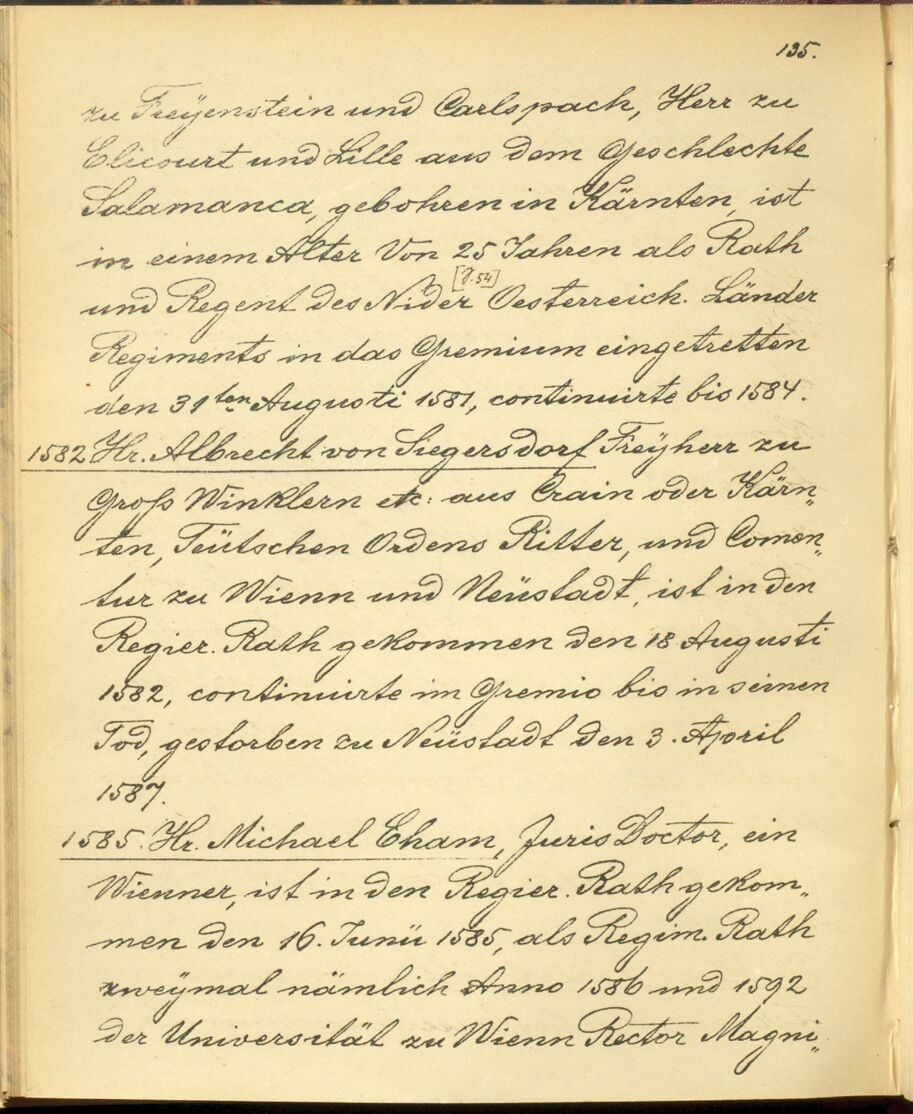 135.
zu Freÿenstein und Carlspach, Herr zu
Elicourt und Lille aus dem Geschlechte
Salamanca, gebohren in Kärnten, ist
in einem Alter Von 25 Jahren als Rath
[p. 54]
und Regent des Nider Oesterreich. Länder
Regiments in das Gremium eingetretten
den 31ten Augusti 1581, continuirte bis 1584.
1582 Hr. Albrecht von Siegersdorf Freÿherr zu
Groß Winklern etc: aus Crain oder Kärn„
ten, Teütschen Ordens Ritter, und Comen„
tur zu Wienn und Neüstadt, ist in den
Regier. Rath gekommen den 18 Augusti
1582, continuirte im Gremio bis in seinen
Tod, gestorben zu Neüstadt den 3. April
1587.
1585. Hr. Michael Eham, Juris Doctor, ein
Wienner, ist in den Regier. Rath gekom„
men den 16. Junii 1585, als Regim. Rath
zweÿmal nämlich Anno 1586 und 1592
der Universität zu Wienn Rector Magni„